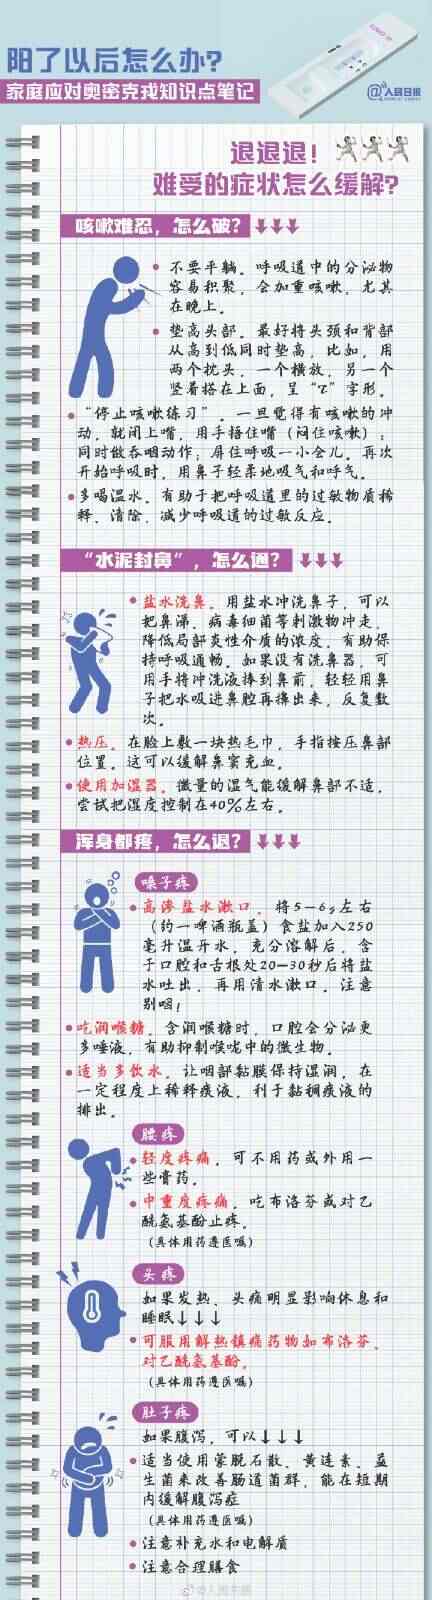 阳了以后怎么办?
家庭应对奥密克戎知识点笔记
@人民日报
退退退!
难受的症状怎么缓解?
咳嗽难忍,怎么破?
不要平躺。呼吸道中的分泌物
容易积聚,会加重咳嗽,尤其
在晚上。
垫高头部。最好将头颈和背部
从高到低同时垫高,比如,用
两个枕头,一个横放,另一个
竖着搭在上面,呈“T”字形。
“停止咳嗽练习”。一旦觉得有咳嗽的冲
动,就闭上嘴,用手捂住嘴(闷住咳嗽);
同时做吞咽动作;屏住呼吸一小会儿。再次
开始呼吸时,用鼻子轻柔地吸气和呼气。
多喝温水。有助于把呼吸道里的过敏物质稀
释、清除,减少呼吸道的过敏反应。
“水泥封鼻”,怎么通?
盐水洗鼻。用盐水冲洗鼻子,可以
把鼻涕、病毒细菌等刺激物冲走,
降低局部炎性介质的浓度,有助保
持呼吸通畅。如果没有洗鼻器,可
用手将冲洗液捧到鼻前,轻轻用鼻
子把水吸进鼻腔再擤出来,反复数
次。
热压。在脸上敷一块热毛巾,手指按压鼻部
位置。这可以缓解鼻窦充血。
使用加湿器。微量的湿气能缓解鼻部不适,
尝试把湿度控制在40%左右。
浑身都疼,怎么退?
嗓子疼
高渗盐水漱口。将5-6g左右
(约一啤酒瓶盖)食盐加入250
毫升温开水,充分溶解后,含
于口腔和舌根处20-30秒后将盐
水吐出,再用清水漱口。注意
别咽!
吃润喉糖。含润喉糖时,口腔会分泌更
多唾液,有助抑制喉咙中的微生物。
适当多饮水。让咽部黏膜保持湿润,在
一定程度上稀释痰液,利于黏稠痰液的
排出。
腰疼
轻度疼痛。可不用药或外用一
些膏药。
中重度疼痛。吃布洛芬或对乙
酰氨基酚止疼。
(具体用药遵医嘱)
头疼
如果发热、头痛明显影响休息和
睡眠↓↓↓
可服用解热镇痛药物如布洛芬、
对乙酰氨基酚。
(具体用药遵医嘱)
肚子疼
如果腹泻,可以↓↓↓
适当使用蒙脱石散、黄连素、益
生菌来改善肠道菌群,能在短期
内缓解腹泻症
(具体用药遵医嘱)
注意补充水和电解质
注意合理膳食